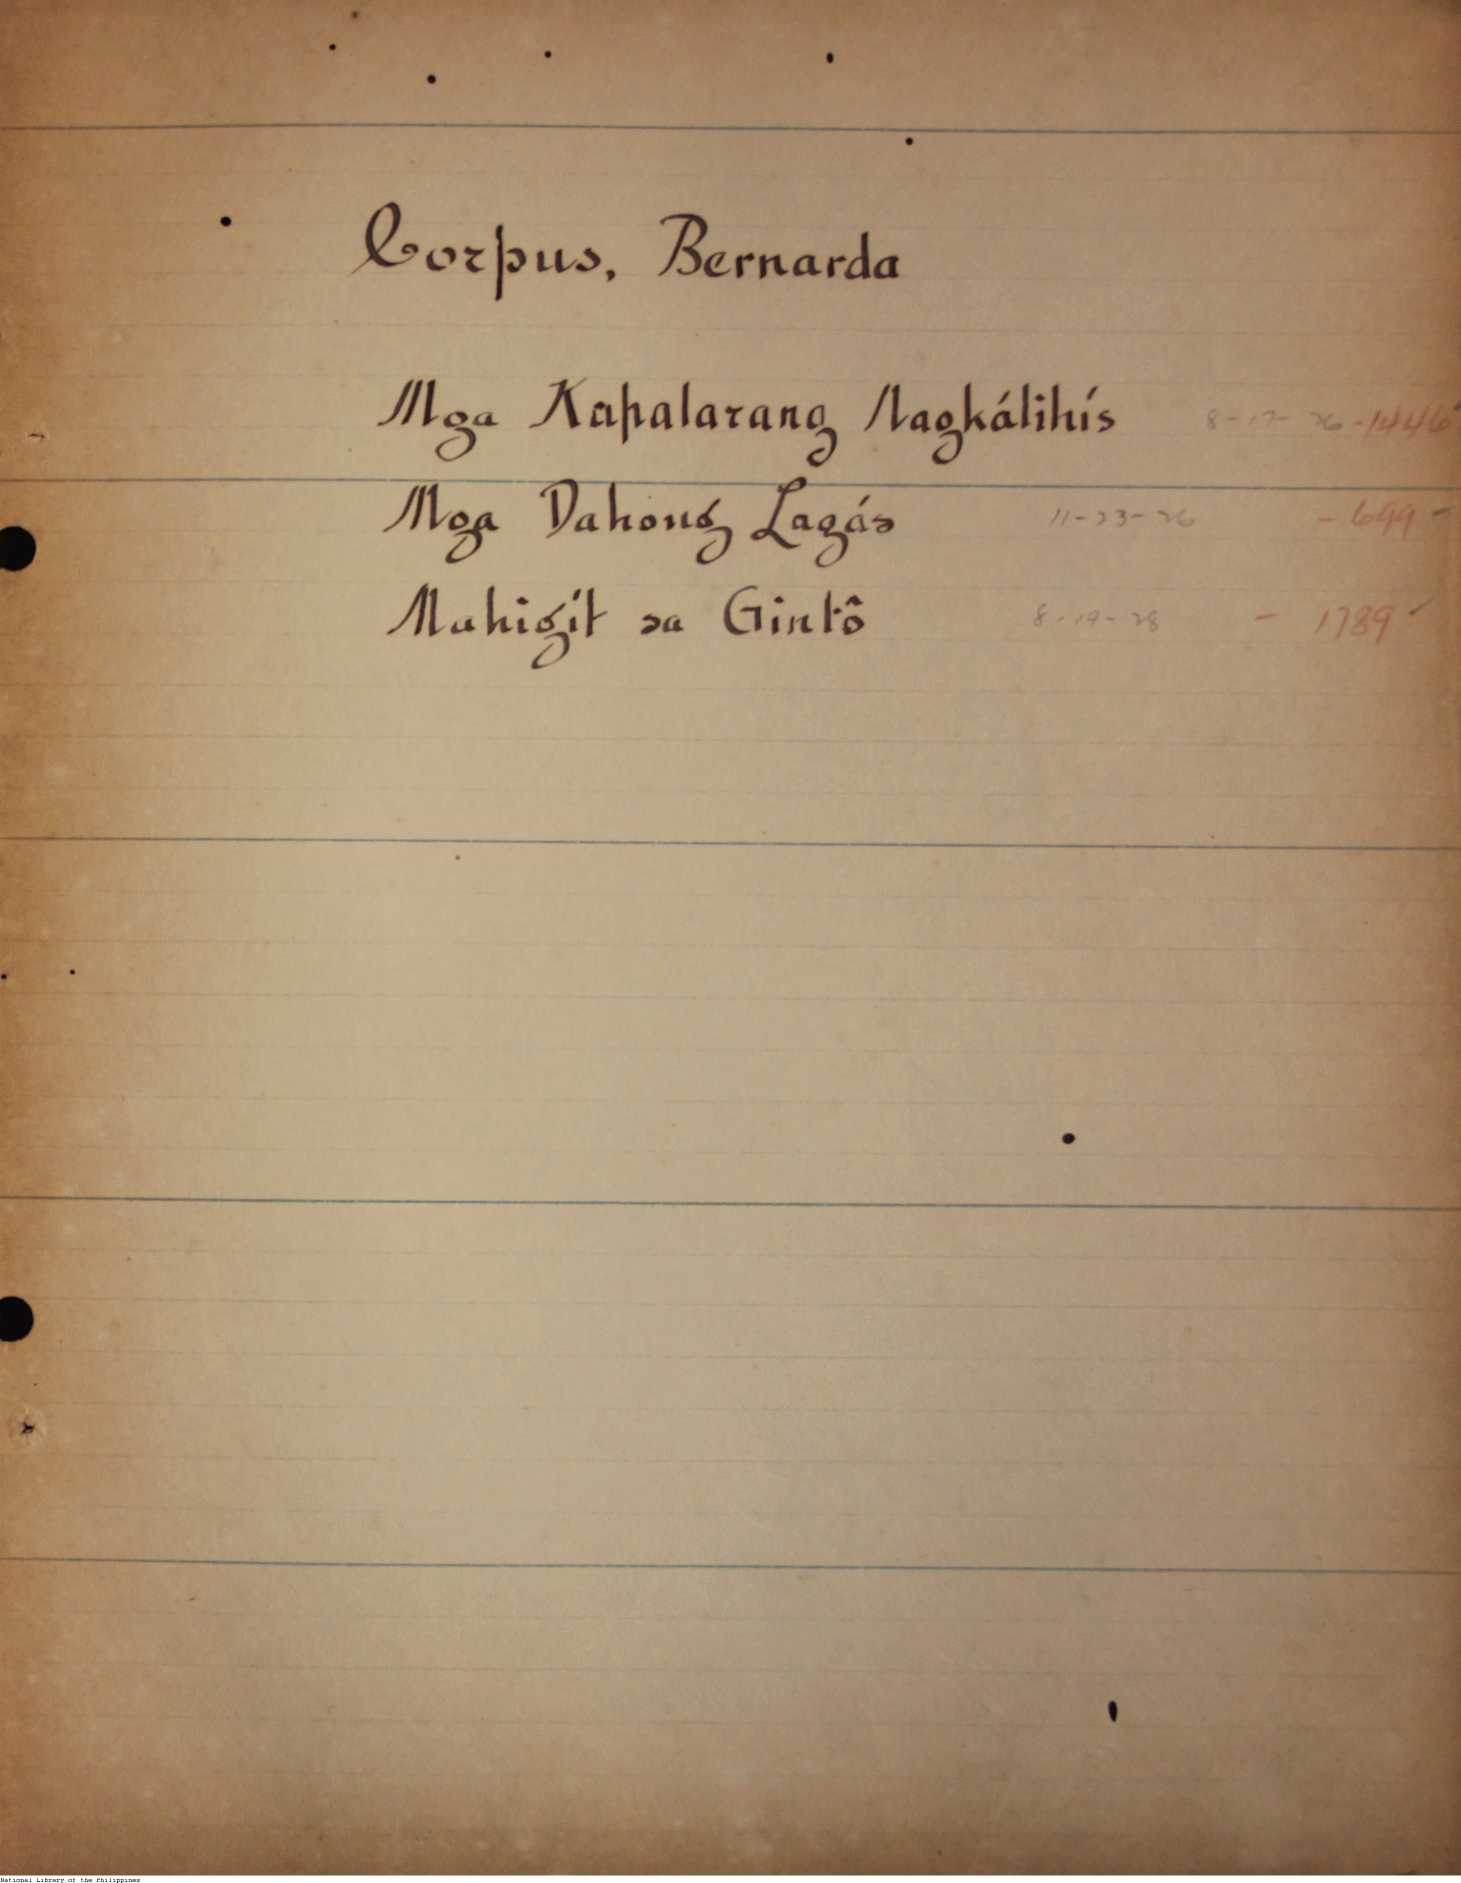 Corpus, Bernarda
Mga Kapalarang Nagkálihís 8-17-26 -1446
Mga Dahong Lagás 11-23-26 - 699
Mahigít sa Gintô 8-19-28 - 1789
National Library of the Philippines